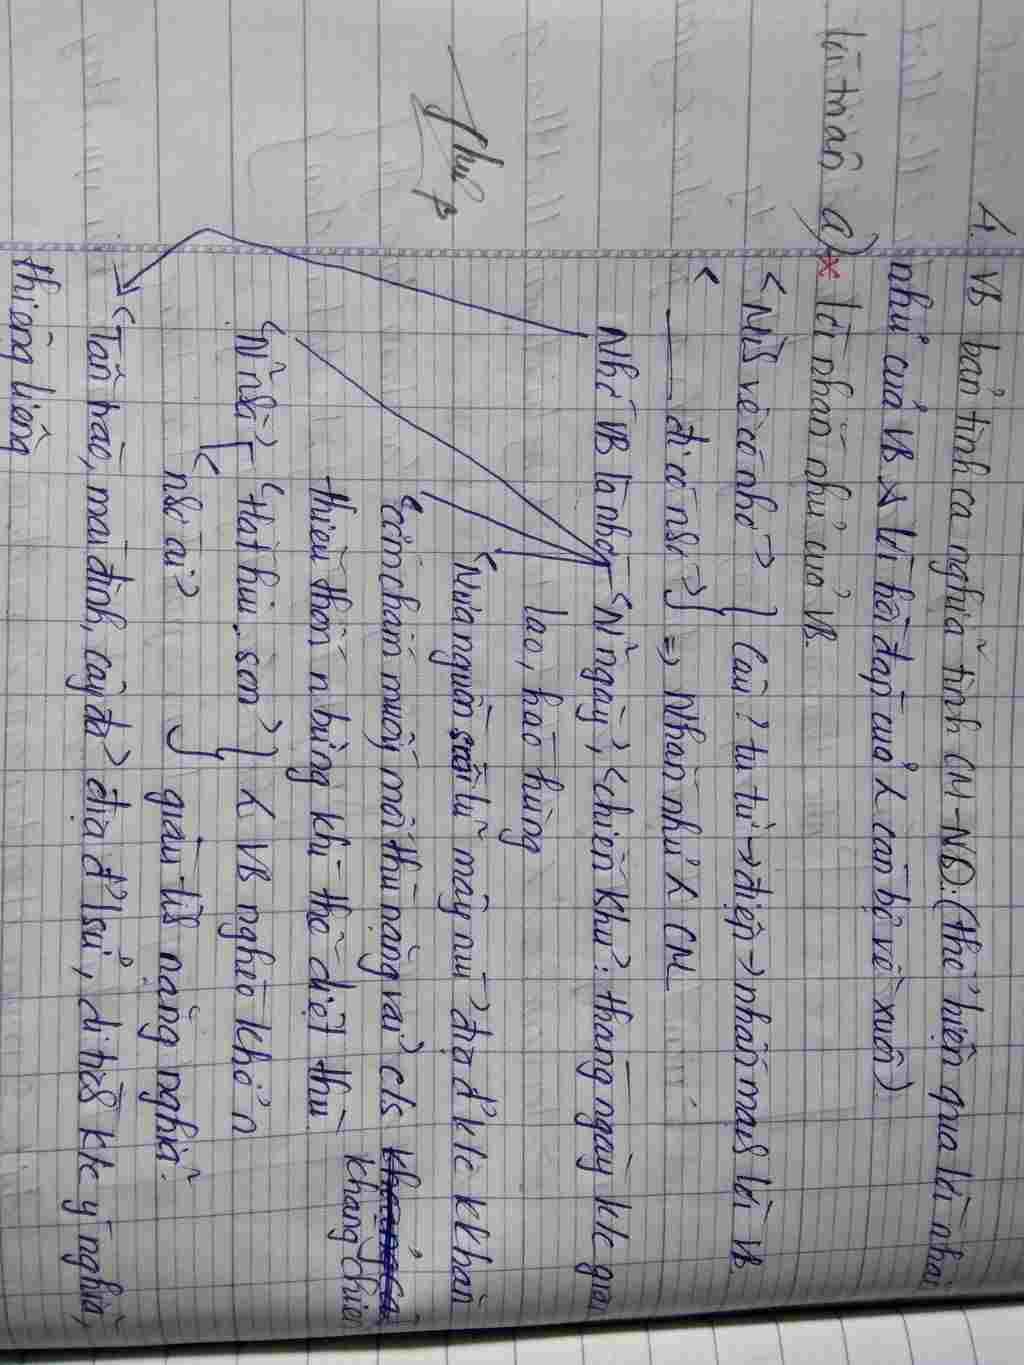 A. VB bản tình ca nghĩa tình CM-ND: (thể hiện qua lời nhắn
nhủ của VB & lời hồi đáp của cán bộ về xuôi)
a) * Lời nhắn nhủ của VB.
lời nhắn
< Mình về có nhớ? } Câu ? tu từ → điệp → nhấn mạnh lời VB.
< ___ đi có nhớ? } => Nhắn nhủ CM
Nhớ VB là nhớ < N ngày, chiến khu: tháng ngày kk gian
lao, hào hùng
< Mưa nguồn suối lũ mây mù → đặc đ' kk khăn
Cơm chấm muối mối thù nặng vai → c/s kháng chiến
thiếu thốn n bừng khí thế diệt thù
N nhà? [ < Hắt hiu.. son } VB nghèo khó n
< nhớ ai? } giàu tình nặng nghĩa
< Tân Trào, mái đình, cây đa → địa đ' l/sử, di tích ý nghĩa,
thiêng liêng